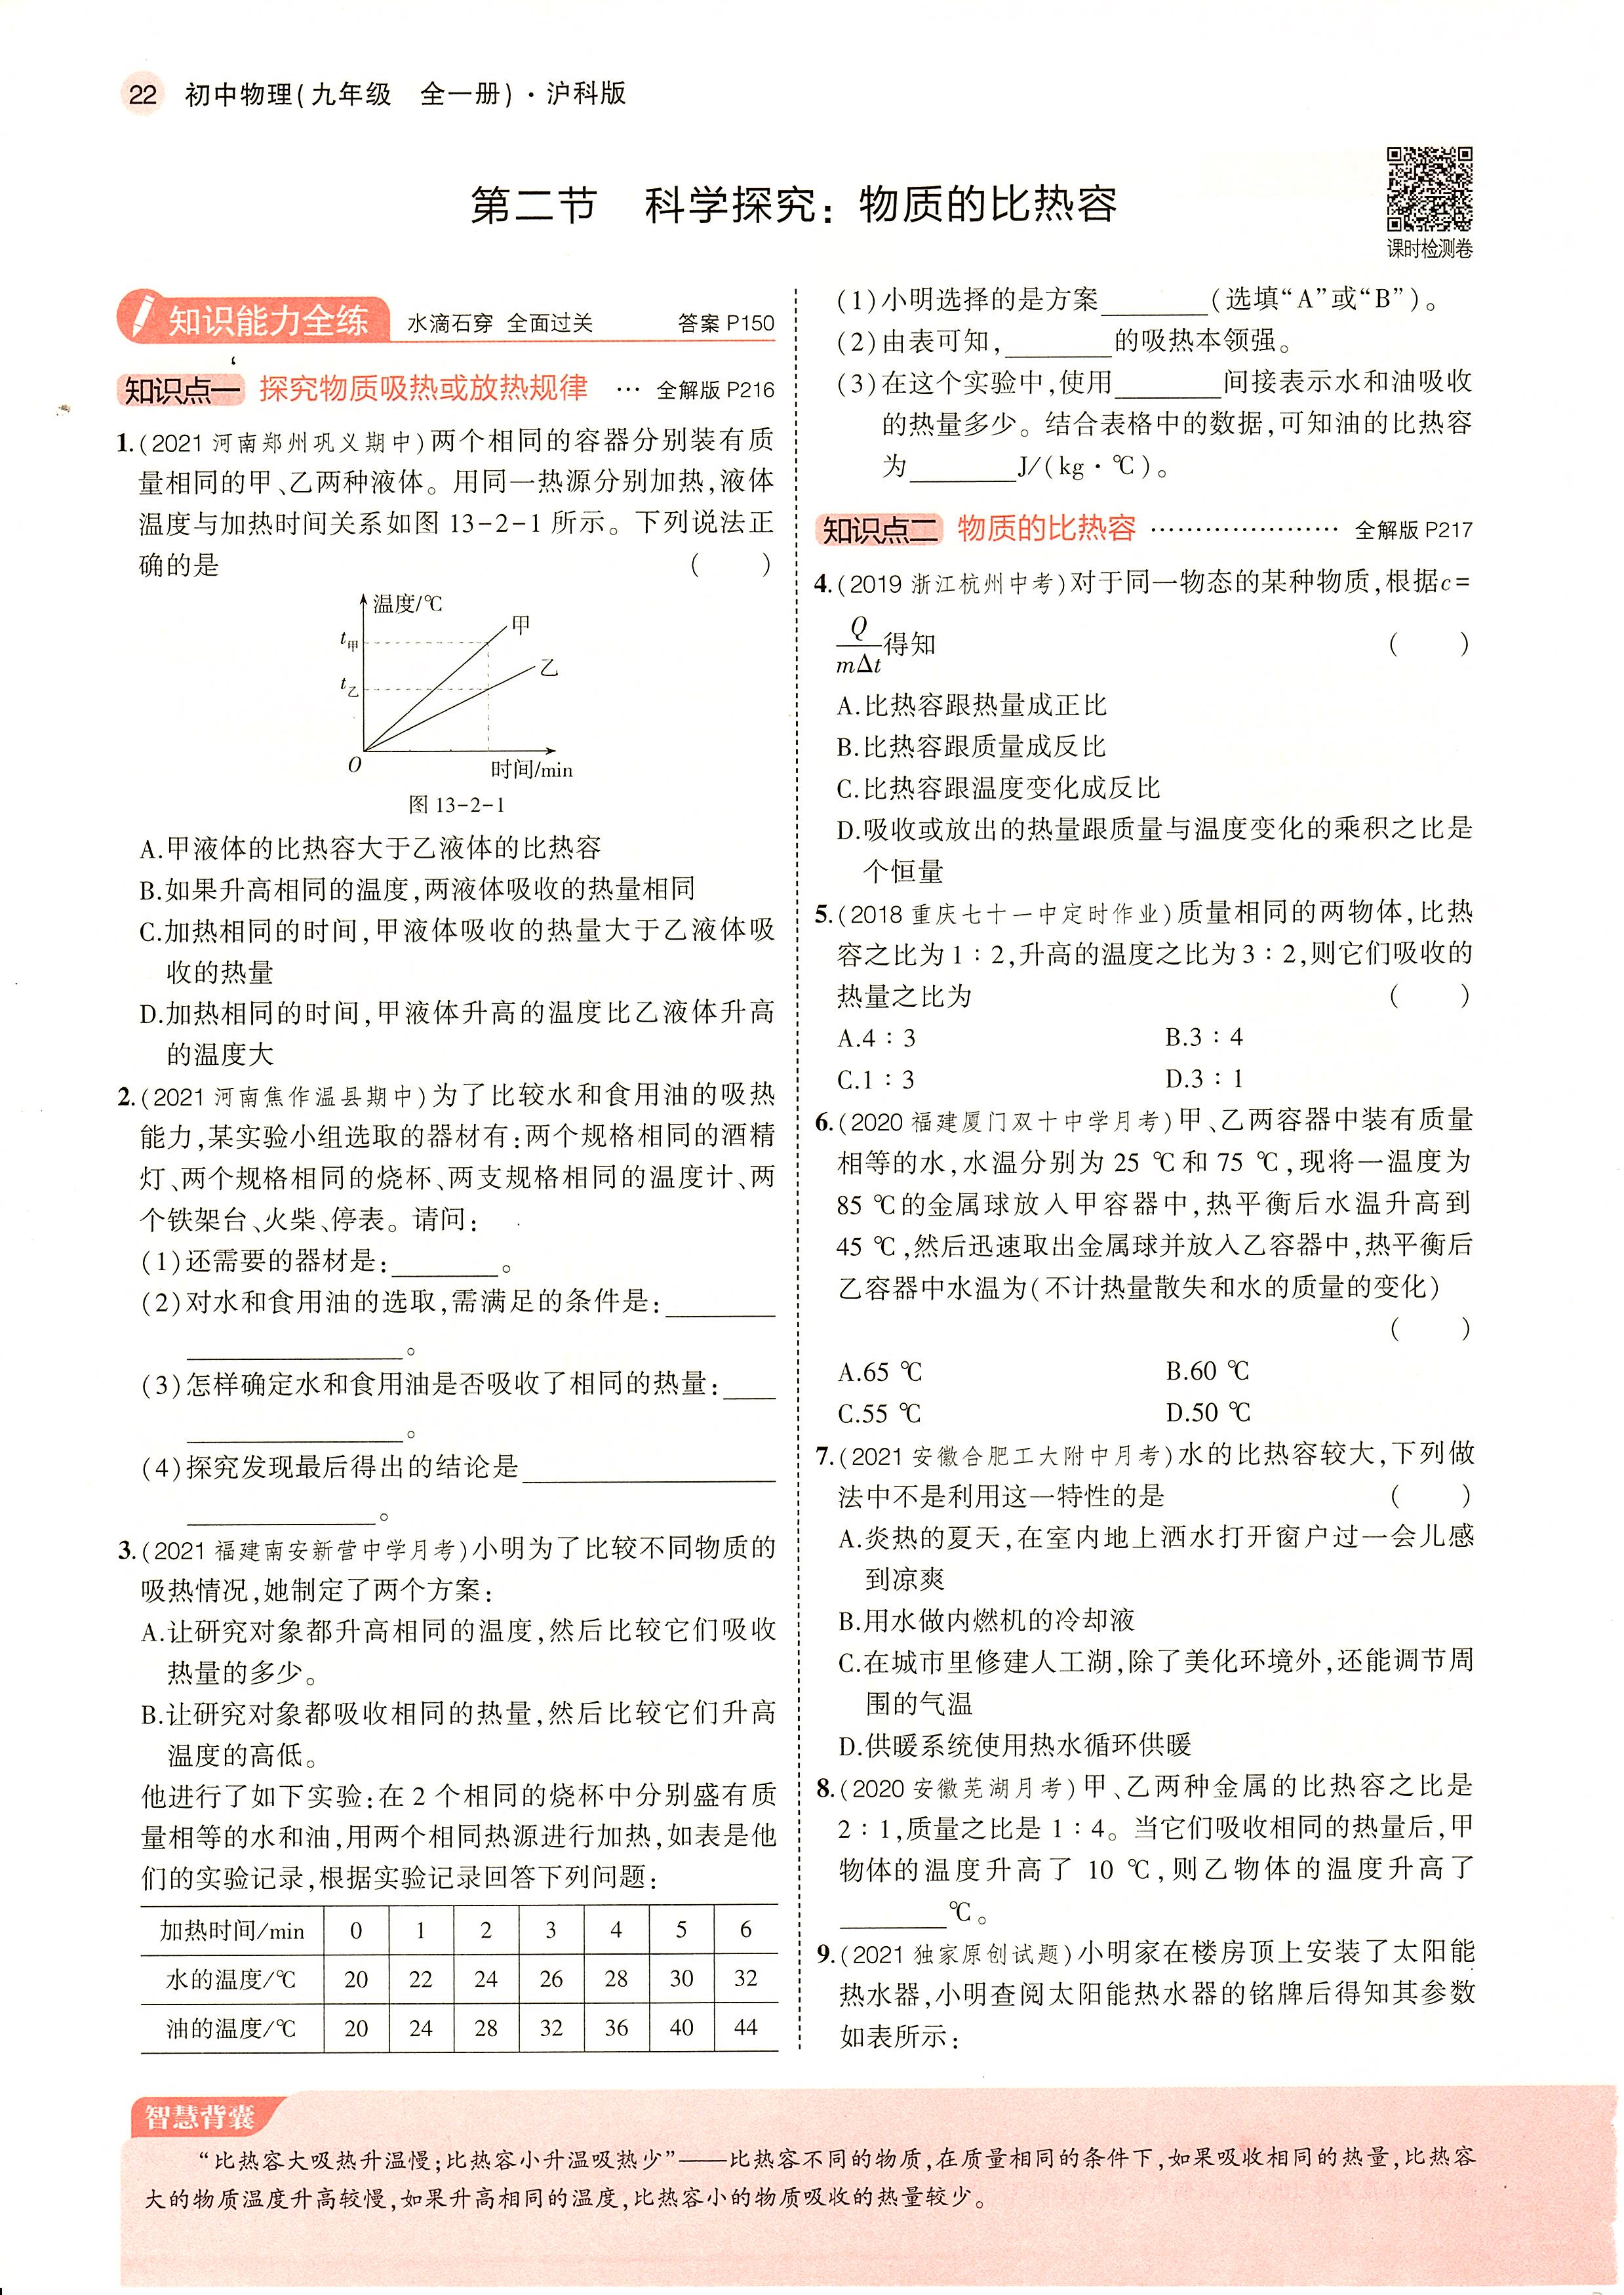 22 初中物理(九年级 全一册)·沪科版
第二节 科学探究：物质的比热容
课时检测卷
知识能力全练 水滴石穿 全面过关 答案 P150
知识点一 探究物质吸热或放热规律 … 全解版 P216
1.(2021 河南郑州巩义期中)两个相同的容器分别装有质
量相同的甲、乙两种液体。用同一热源分别加热,液体
温度与加热时间关系如图 13-2-1 所示。下列说法正
确的是 ( )
温度/℃
甲
t甲
乙
t乙
O
时间/min
图 13-2-1
A.甲液体的比热容大于乙液体的比热容
B.如果升高相同的温度,两液体吸收的热量相同
C.加热相同的时间,甲液体吸收的热量大于乙液体吸
收的热量
D.加热相同的时间,甲液体升高的温度比乙液体升高
的温度大
2.(2021 河南焦作温县期中)为了比较水和食用油的吸热
能力,某实验小组选取的器材有:两个规格相同的酒精
灯、两个规格相同的烧杯、两支规格相同的温度计、两
个铁架台、火柴、停表。请问:
(1)还需要的器材是:________。
(2)对水和食用油的选取,需满足的条件是:________
________________。
(3)怎样确定水和食用油是否吸收了相同的热量:____
________________。
(4)探究发现最后得出的结论是___________________
______________。
3.(2021 福建南安新营中学月考)小明为了比较不同物质的
吸热情况,她制定了两个方案:
A.让研究对象都升高相同的温度,然后比较它们吸收
热量的多少。
B.让研究对象都吸收相同的热量,然后比较它们升高
温度的高低。
他进行了如下实验:在 2 个相同的烧杯中分别盛有质
量相等的水和油,用两个相同热源进行加热,如表是他
们的实验记录,根据实验记录回答下列问题:
加热时间/min 0 1 2 3 4 5 6
水的温度/℃ 20 22 24 26 28 30 32
油的温度/℃ 20 24 28 32 36 40 44
(1)小明选择的是方案________(选填“A”或“B”)。
(2)由表可知,________的吸热本领强。
(3)在这个实验中,使用________间接表示水和油吸收
的热量多少。结合表格中的数据,可知油的比热容
为________J/(kg·℃)。
知识点二 物质的比热容 ………………… 全解版 P217
4.(2019 浙江杭州中考)对于同一物态的某种物质,根据c=
Q/mΔt得知 ( )
A.比热容跟热量成正比
B.比热容跟质量成反比
C.比热容跟温度变化成反比
D.吸收或放出的热量跟质量与温度变化的乘积之比是
个恒量
5.(2018 重庆七十一中定时作业)质量相同的两物体,比热
容之比为1∶2,升高的温度之比为3∶2,则它们吸收的
热量之比为 ( )
A.4∶3 B.3∶4
C.1∶3 D.3∶1
6.(2020 福建厦门双十中学月考)甲、乙两容器中装有质量
相等的水,水温分别为 25 ℃和 75 ℃,现将一温度为
85 ℃的金属球放入甲容器中,热平衡后水温升高到
45 ℃,然后迅速取出金属球并放入乙容器中,热平衡后
乙容器中水温为(不计热量散失和水的质量的变化)
( )
A.65 ℃ B.60 ℃
C.55 ℃ D.50 ℃
7.(2021 安徽合肥工大附中月考)水的比热容较大,下列做
法中不是利用这一特性的是 ( )
A.炎热的夏天,在室内地上洒水打开窗户过一会儿感
到凉爽
B.用水做内燃机的冷却液
C.在城市里修建人工湖,除了美化环境外,还能调节周
围的气温
D.供暖系统使用热水循环供暖
8.(2020 安徽芜湖月考)甲、乙两种金属的比热容之比是
2∶1,质量之比是 1∶4。当它们吸收相同的热量后,甲
物体的温度升高了 10 ℃,则乙物体的温度升高了
________℃。
9.(2021 独家原创试题)小明家在楼房顶上安装了太阳能
热水器,小明查阅太阳能热水器的铭牌后得知其参数
如表所示:
智慧背囊
“比热容大吸热升温慢;比热容小升温吸热少”——比热容不同的物质,在质量相同的条件下,如果吸收相同的热量,比热容
大的物质温度升高较慢,如果升高相同的温度,比热容小的物质吸收的热量较少。